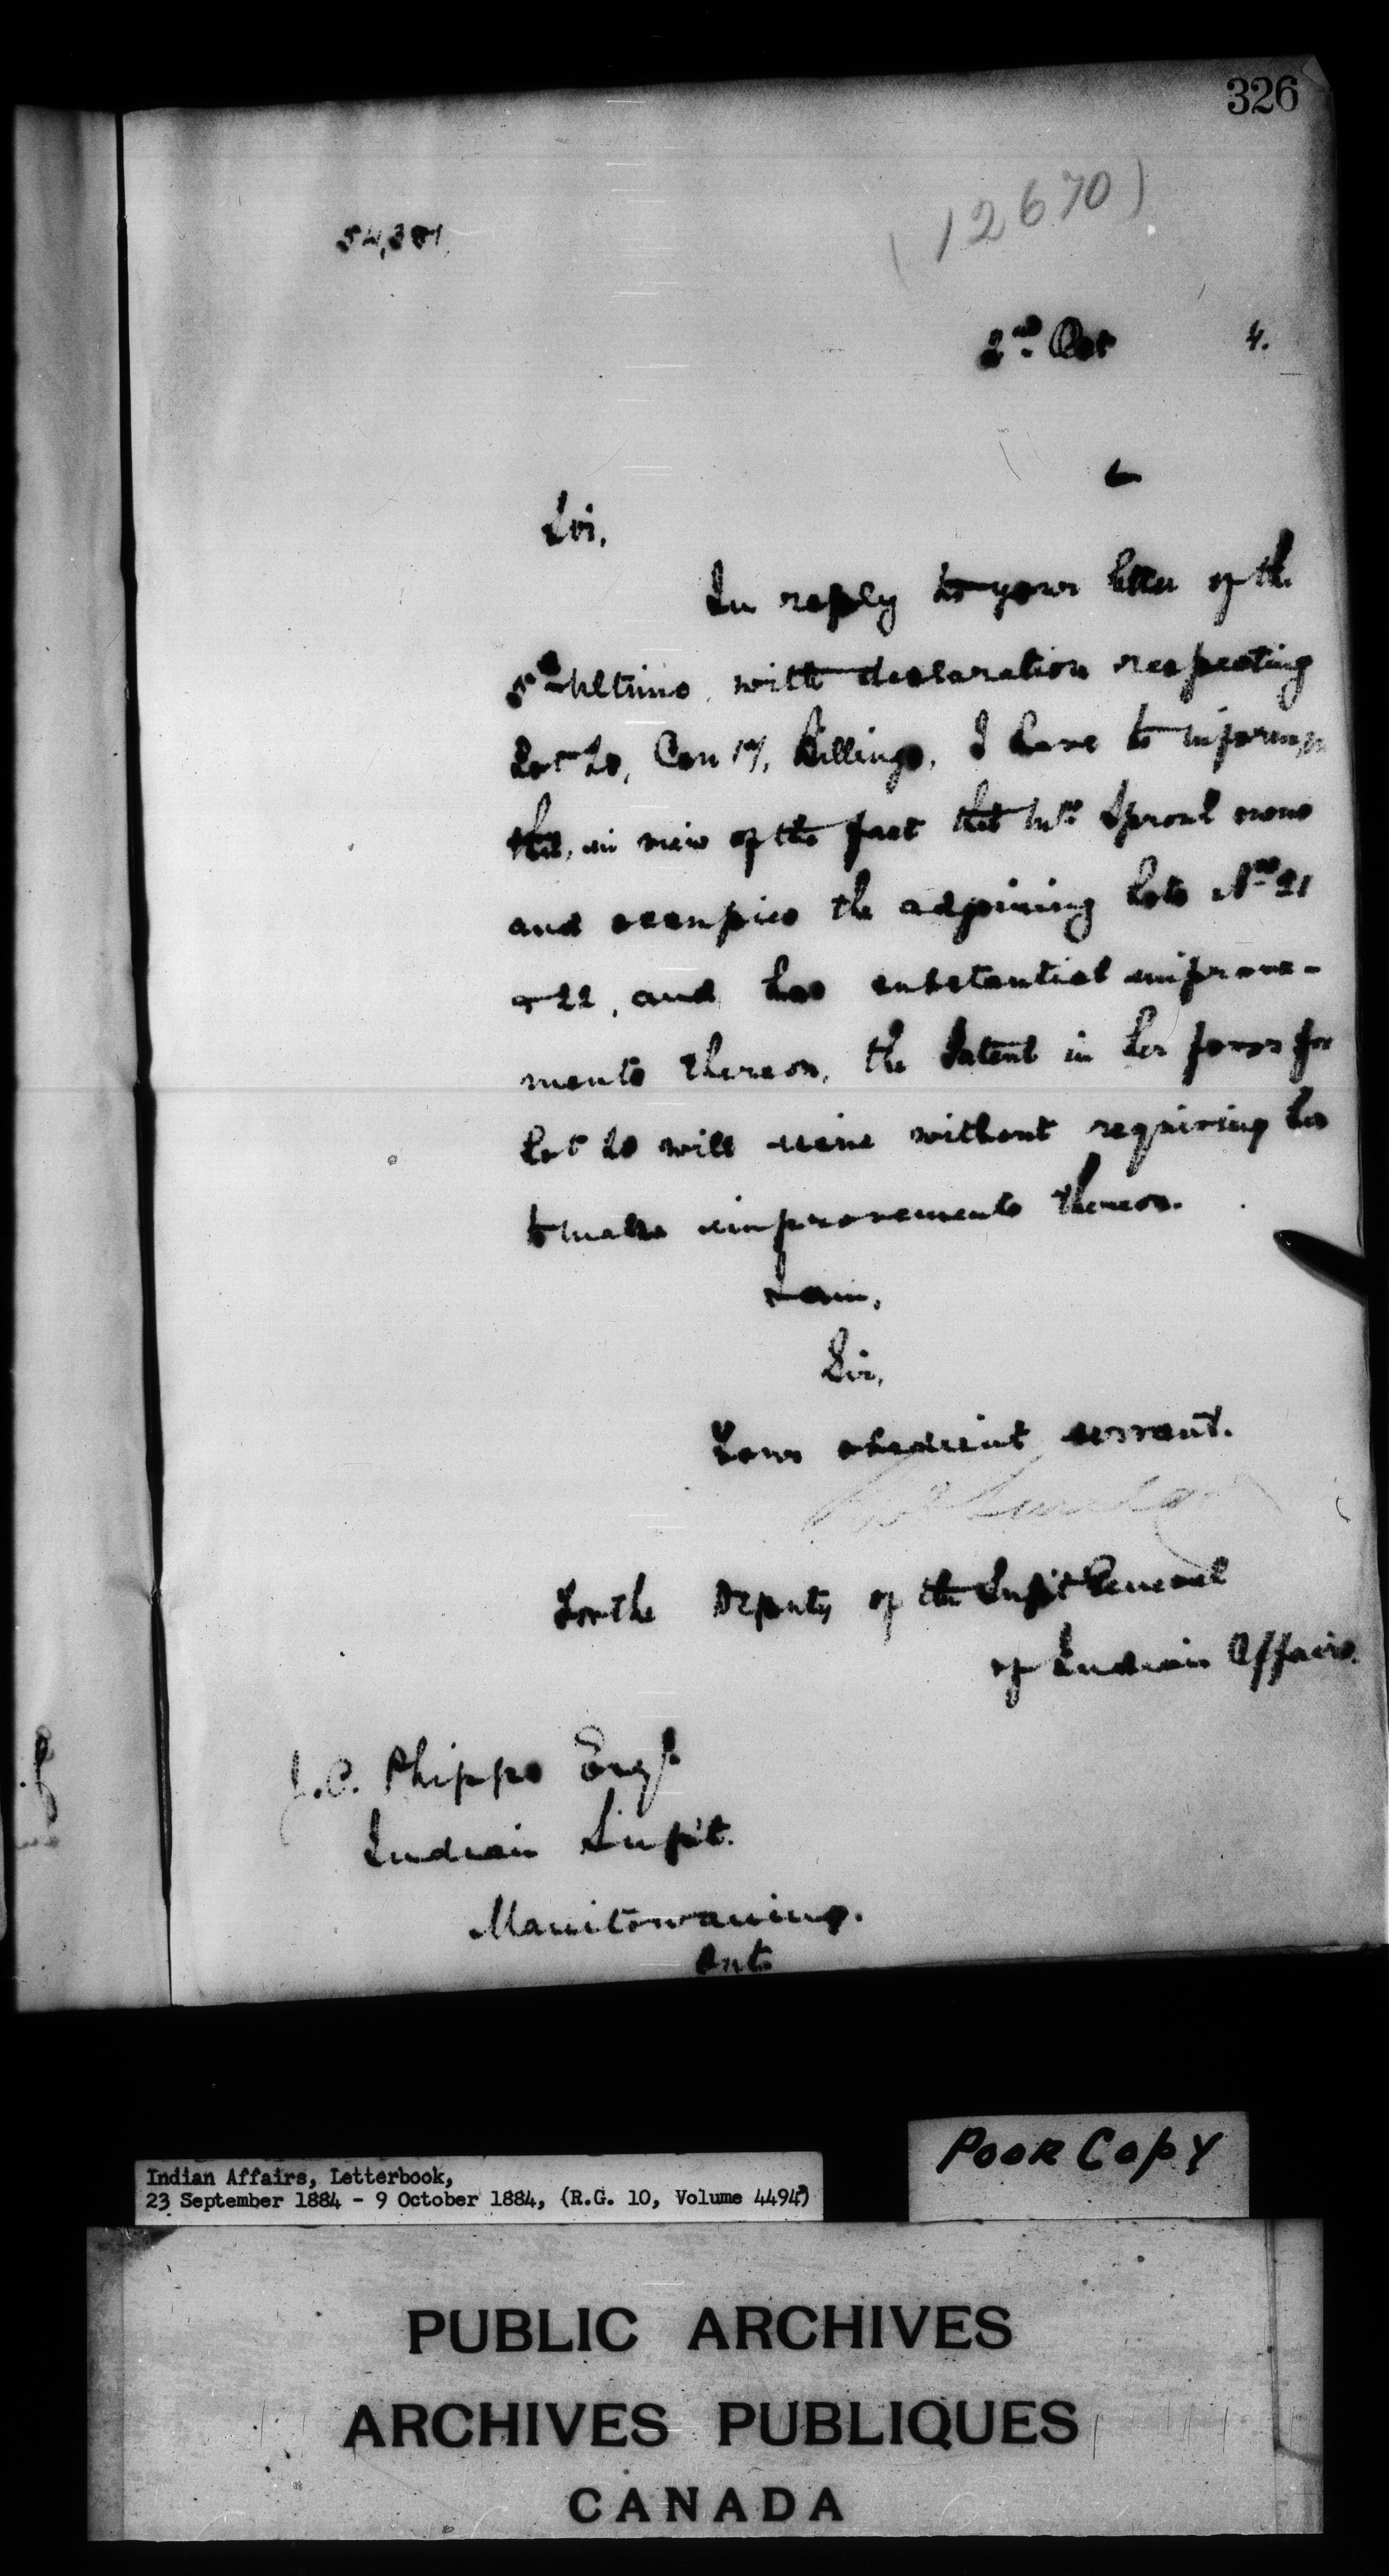 326
(12670)
54,381
2nd Oct 4.
Sir,
In reply to your letter of the
5th Ultimo, with declaration respecting
Lot 20, Con 14, Billings, I have to inform you
that, in view of the fact that Mrs Sproul owns
and occupies the adjoining Lots Nos 21
+ 22, and has substantial improve-
ments thereon, the Patent in her favor for
Lot 20 will issue without requiring her
to make improvements thereon.
I am,
Sir,
Your obedient servant.
For the Deputy of the Supt General
of Indian Affairs.
J.C. Phipps Esq.
Indian Supt.
Manitowaning.
Ont
POOR COPY
Indian Affairs, Letterbook,
23 September 1884 - 9 October 1884, (R.G. 10, Volume 4494)
PUBLIC ARCHIVES
ARCHIVES PUBLIQUES
CANADA